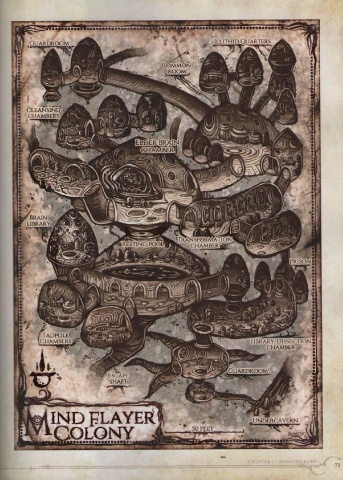 Guardroom
Illithid Quarters
Common
Room
Cleansing
Chambers
Elder Brain
Chamber
Brain
Library
Meeting Pool
Transformation
Chamber
Prison
Tadpole
Chambers
Library/Dissection
Chamber
Escape
Shaft
Guardroom
Undercavern
50 Feet
Mind Flayer
Colony